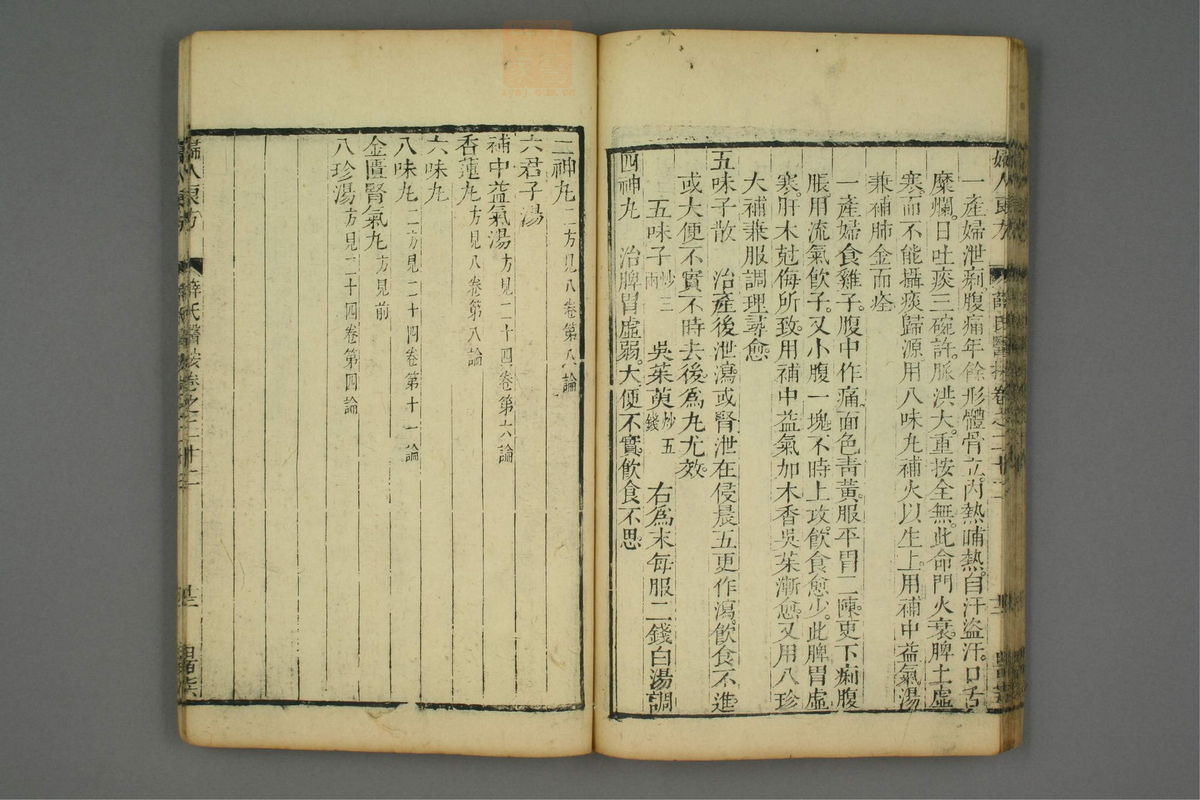 一產婦泄痢腹痛年餘形體骨立。內熱晡熱。自汗盜汗。口舌
糜爛。日吐痰三碗許。脈洪大。重按全無。此命門火衰。脾土虛
寒。而不能攝痰歸源用八味丸補火以生土。用補中益氣湯
兼補肺金而痊
一產婦食雞子。腹中作痛面色青黃。服平胃二陳更下痢腹
脹。用流氣飲子。又小腹一塊不時上攻。飲食愈少。此脾胃虛
寒。肝木尅侮所致。用補中益氣加木香吳茱漸愈。又用八珍
大補兼服調理尋愈。
五味子散 治產後泄瀉或腎泄在侵晨五更作瀉。飲食不進
或大便不實不時去後為丸尤效。
五味子炒三兩 吳茱萸炒五錢 右為末每服二錢白湯調
四神丸 治脾胃虛弱。大便不實飲食不思
二神丸二方見八卷第八論
六君子湯
補中益氣湯方見二十四卷第六論
香蓮丸方見八卷第八論
六味丸
八味丸二方見二十四卷第十一論
金匱腎氣丸方見前
八珍湯方見二十四卷第四論
婦人良方 薛氏醫按卷之二十二